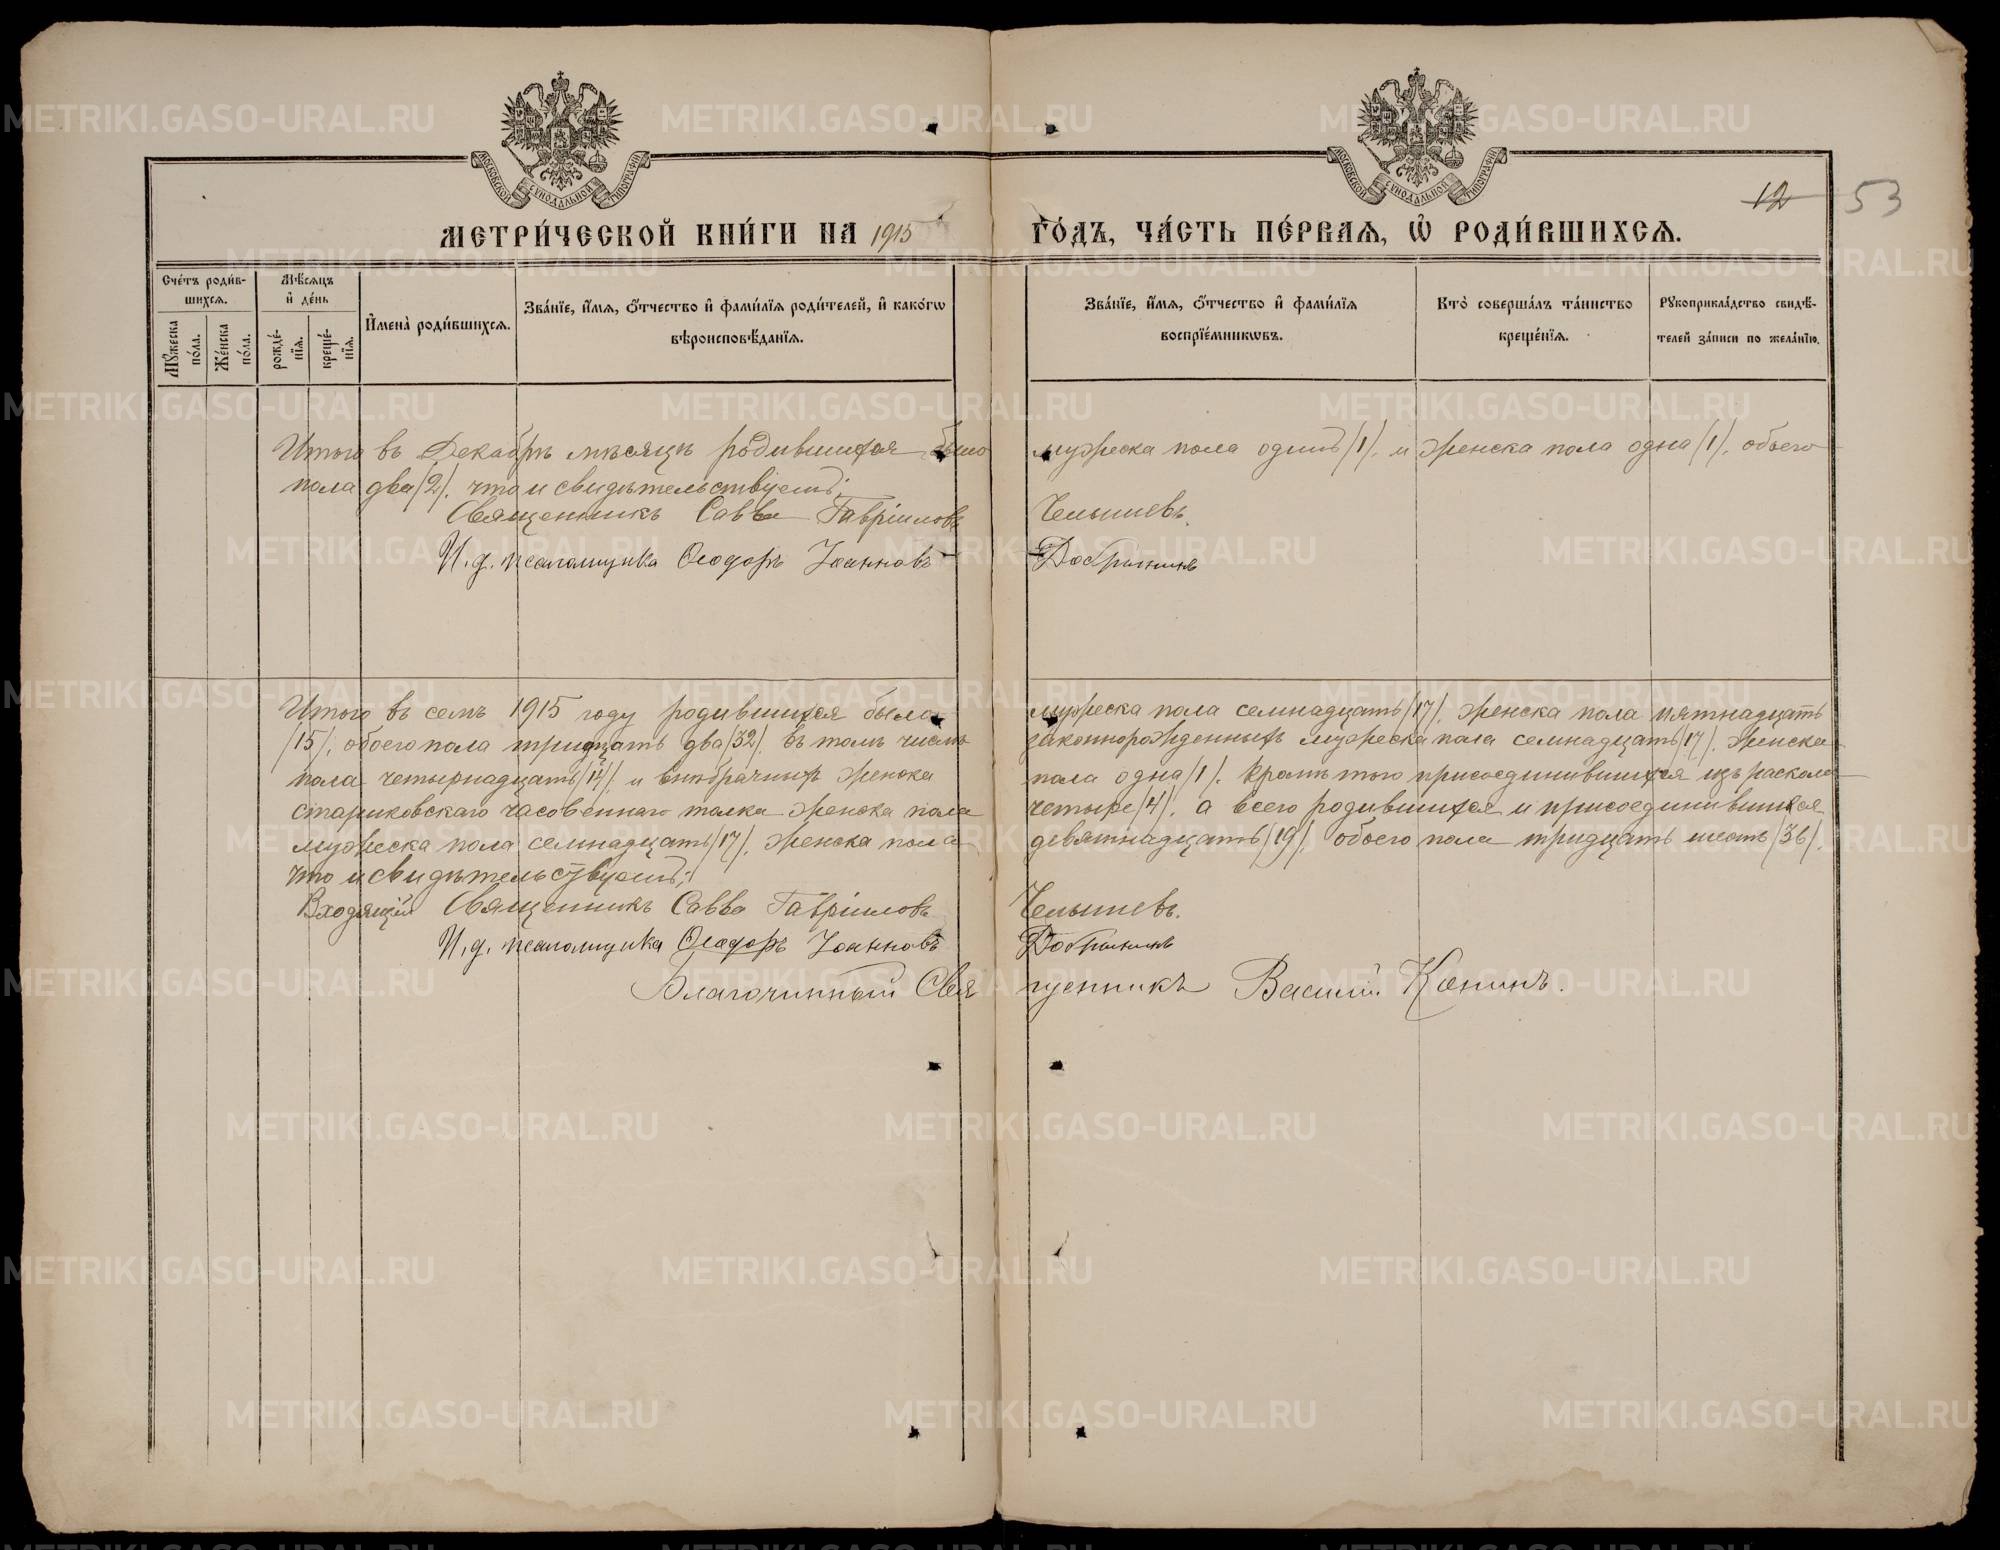 МОСКОВСКОЙ СѴНОДАЛЬНОЙ ТИПОГРАФІИ
МОСКОВСКОЙ СѴНОДАЛЬНОЙ ТИПОГРАФІИ
12 53
МЕТРИ́ЧЕСКОЙ КНИ́ГИ НА 1915 ГО́ДЪ, ЧА́СТЬ ПЕ́РВАѦ, Ѡ҆ РОДИ́ВШИХСѦ.
Сче́тъ роди́в-
шихсѧ.
Мꙋжеска по́ла.
Же́нска по́ла.
Мѣ́сѧцъ
и҆ де́нь
рожде́-
нїѧ.
креще́-
нїѧ.
И҆мена̀ роди́вшихсѧ.
Зва́нїе, и҆́мѧ, ѻ҆́тчество и҆ фами́лїѧ роди́телей, и҆ како́гѡ
вѣроисповѣ́данїѧ.
Зва́нїе, и҆́мѧ, ѻ҆́тчество и҆ фами́лїѧ
воспрїе́мникѡвъ.
Кто̀ соверша́лъ та́инство
креще́нїѧ.
Рꙋкоприкла́дство свидѣ́-
телей за́писи по жела́нїю.
Итого въ Декабрѣ мѣсяцѣ родившихся было мужеска пола одинъ /1/, и женска пола одна /1/, обоего
пола два /2/, что и свидѣтельствуемъ:
Священникъ Савва Гавріиловъ Челышевъ.
И. д. псаломщика Ѳеодоръ Іоанновъ Добрынинъ
Итого въ семъ 1915 году родившихся было мужеска пола семнадцать /17/, женска пола пятнадцать
/15/, обоего пола тридцать два /32/, въ томъ числѣ законнорожденныхъ мужеска пола семнадцать /17/, женска
пола четырнадцать /14/, и внѣбрачныхъ женска пола одна /1/. Кромѣ того присоединившихся изъ раскола
стариковскаго часовеннаго толка женска пола четыре /4/, а всего родившихся и присоединившихся
мужеска пола семнадцать /17/, женска пола девятнадцать /19/, обоего пола тридцать шесть /36/,
что и свидѣтельствуемъ:
Входящій Священникъ Савва Гавріиловъ Челышевъ.
И. д. псаломщика Ѳеодоръ Іоанновъ Добрынинъ
Благочинный Священникъ Василій Конинъ.
METRIKI.GASO-URAL.RU